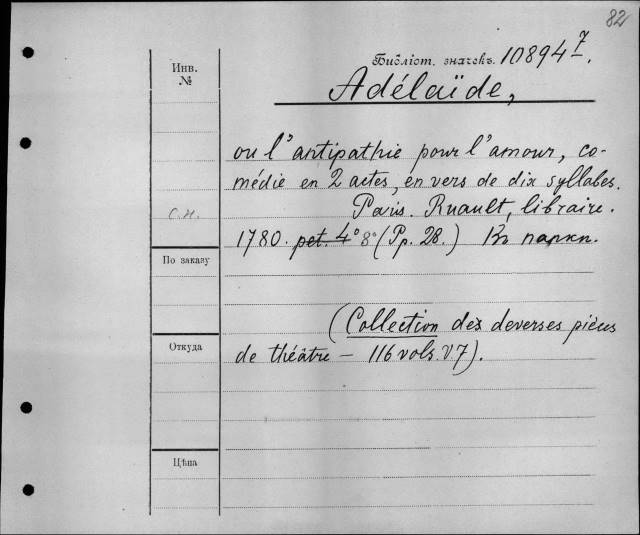 82
Библіот. значекъ. 10894 7.
Инв.
№
Adélaïde,
ou l'antipathie pour l'amour, co-
médie en 2 actes, en vers de dix syllabes.
с.н.
Paris. Ruault, libraire.
1780. pet. 4° 8° (Pp. 28.) Въ папкѣ.
По заказу
(Collection des deverses pièces
Откуда
de théâtre – 116 vols. V.7).
Цѣна